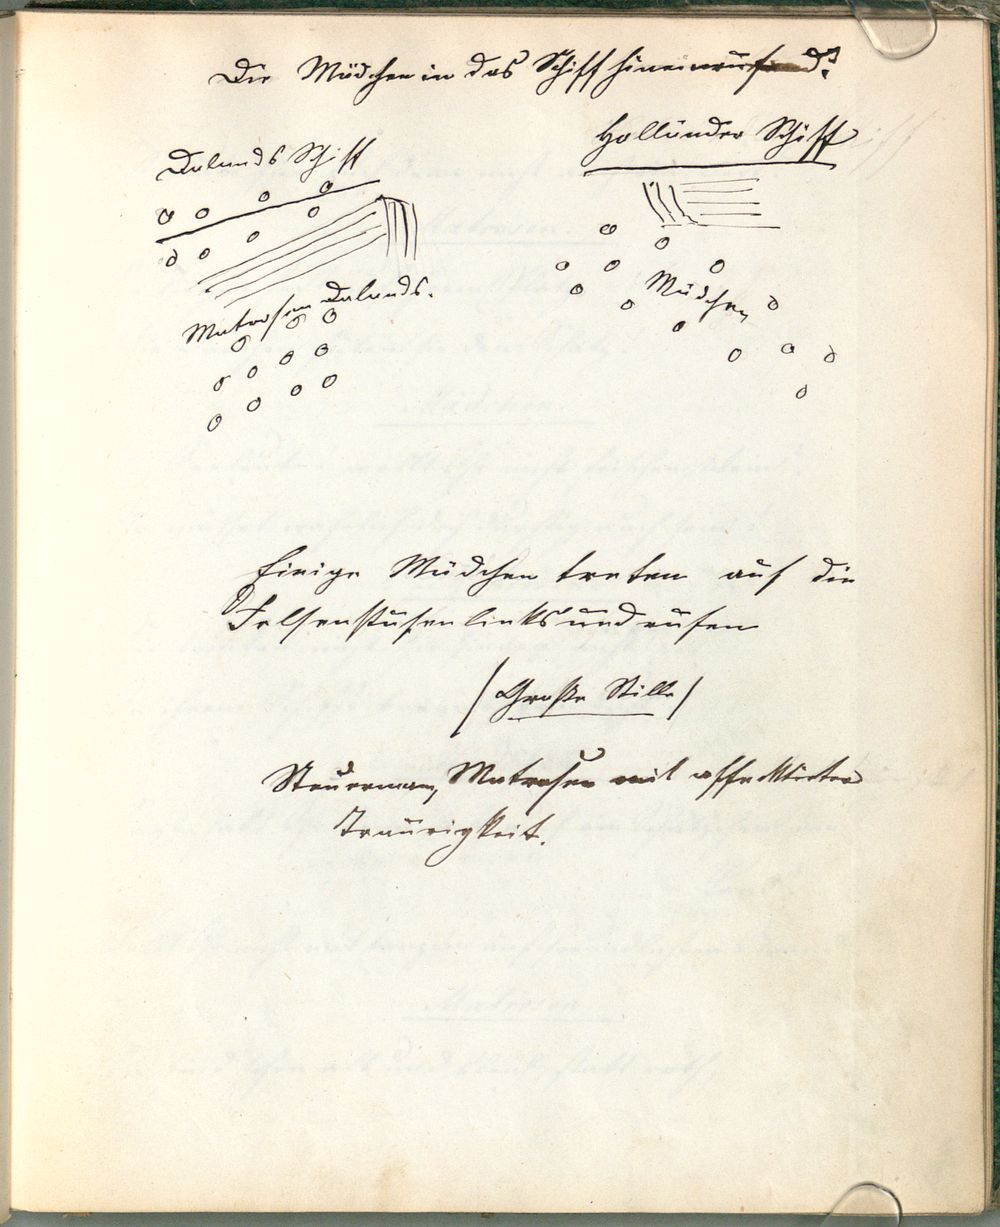 Die Mädchen in das Schiff hineinrufend:
Dalands Schiff
Holländer Schiff
Matrosen Dalands.
Mädchen
Einige Mädchen treten auf die
Felsenstufen links und rufen
(Große Stille)
Steuermann, Matrosen mit affektierter
Traurigkeit.